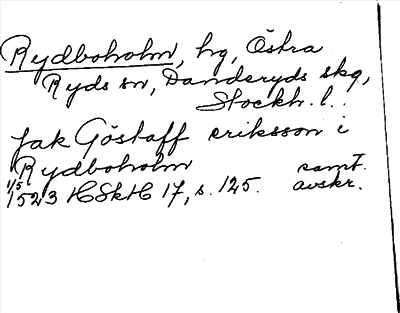 Rydboholm, hg, Östra
Ryds sn, Danderyds skg,
Stockh. l..
Jak Göstaff eriksson i
Rydboholm samt.
1/5 1523 HSkH 17, s. 125. avskr.